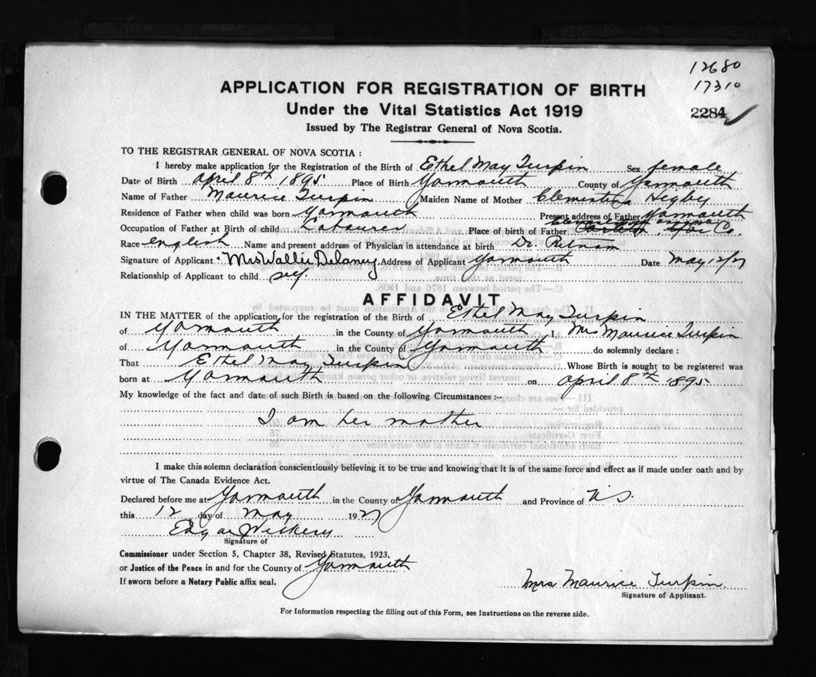 12680
17310
APPLICATION FOR REGISTRATION OF BIRTH
Under the Vital Statistics Act 1919
2284
Issued by The Registrar General of Nova Scotia.
TO THE REGISTRAR GENERAL OF NOVA SCOTIA :
I hereby make application for the Registration of the Birth of Ethel May Turpin Sex female
Date of Birth April 8th 1895 Place of Birth Yarmouth County of Yarmouth
Name of Father Maurice Turpin Maiden Name of Mother Clementina
Residence of Father when child was born Yarmouth Present address of Father Yarmouth
Occupation of Father at Birth of child Labourer Place of birth of Father Co.
Race english Name and present address of Physician in attendance at birth Dr. Putnam
Signature of Applicant Mrs Wallie Delaney Address of Applicant Yarmouth Date May 12/27
Relationship of Applicant to child self
AFFIDAVIT
IN THE MATTER of the application for the registration of the Birth of Ethel May Turpin
of Yarmouth in the County of Yarmouth I, Mrs Maurice Turpin
of Yarmouth in the County of Yarmouth do solemnly declare :
That Ethel May Turpin Whose Birth is sought to be registered was
born at Yarmouth on April 8th 1895
My knowledge of the fact and date of such Birth is based on the following Circumstances :-
I am her mother
I make this solemn declaration conscientiously believing it to be true and knowing that it is of the same force and effect as if made under oath and by
virtue of The Canada Evidence Act.
Declared before me at Yarmouth in the County of Yarmouth and Province of N.S.
this 12 day of May 1927
Edgar Vickery
Signature of
Commissioner under Section 5, Chapter 38, Revised Statutes, 1923,
or Justice of the Peace in and for the County of Yarmouth
If sworn before a Notary Public affix seal.
Mrs Maurice Turpin
Signature of Applicant.
For Information respecting the filling out of this Form, see Instructions on the reverse side.